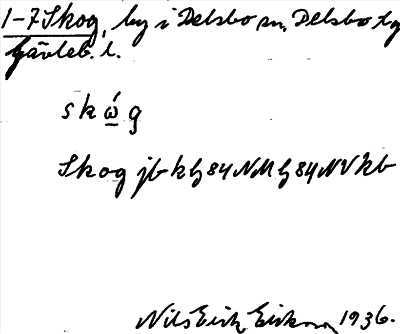 1-7 Skog, by i Delsbo sn, Delsbo tg
Gävleb. l.
skώ̲g
Skog jb kg 84 NM g 84 NV kb
Nils Erik Erikson 1936.